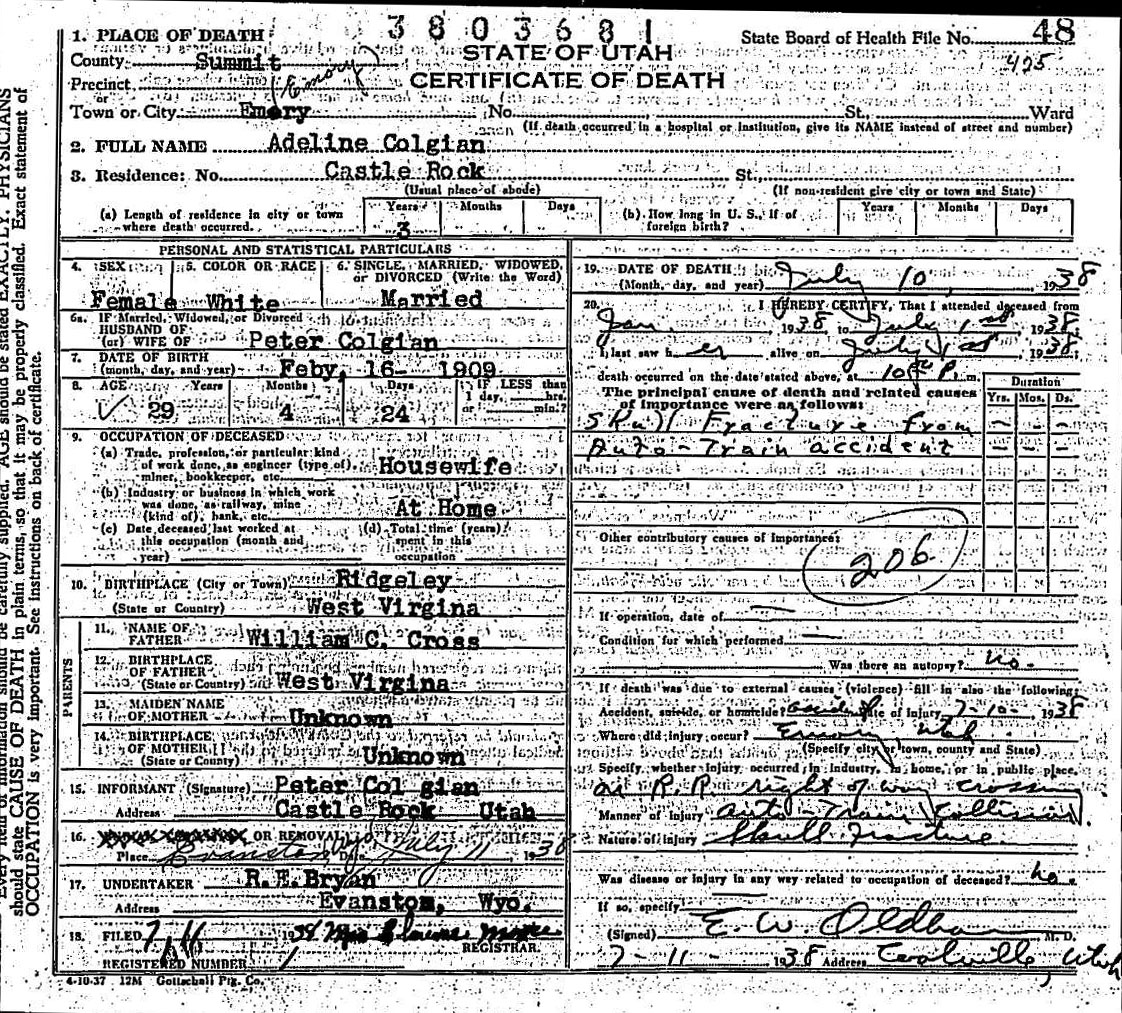 3803681
1. PLACE OF DEATH
State Board of Health File No. 48
County Summit
STATE OF UTAH
425
Precinct (Emory)
CERTIFICATE OF DEATH
or
Town or City Emery No. St., Ward
(If death occurred in a hospital or institution, give its NAME instead of street and number)
2. FULL NAME Adeline Colgian
3. Residence: No. Castle Rock St.,
(Usual place of abode) (If non-resident give city or town and State)
(a) Length of residence in city or town where death occurred. Years 3 Months Days
(b) How long in U. S., if of foreign birth? Years Months Days
PERSONAL AND STATISTICAL PARTICULARS
4. SEX 5. COLOR OR RACE 6. SINGLE, MARRIED, WIDOWED, or DIVORCED (Write the Word)
Female White Married
6a. IF Married, Widowed, or Divorced
HUSBAND OF
(or) WIFE OF Peter Colgian
7. DATE OF BIRTH
(month, day, and year) Feby, 16- 1909
8. AGE Years Months Days IF LESS than 1 day, hrs. or min.?
29 4 24
9. OCCUPATION OF DECEASED
(a) Trade, profession, or particular kind
of work done, as engineer (type of), Housewife
miner, bookkeeper, etc.
(b) Industry or business in which work
was done, as railway, mine At Home
(kind of), bank, etc.
(c) Date deceased last worked at this occupation (month and year)
(d) Total time (years) spent in this occupation
10. BIRTHPLACE (City or Town) Ridgeley
(State or Country) West Virgina
PARENTS
11. NAME OF FATHER William C. Cross
12. BIRTHPLACE OF FATHER
(State or Country) West Virgina
13. MAIDEN NAME OF MOTHER Unknown
14. BIRTHPLACE OF MOTHER
(State or Country) Unknown
15. INFORMANT (Signature) Peter Col gian
Address Castle Rock Utah
16. OR REMOVAL
Place Evanston Wyo. Date July 11, 1938
17. UNDERTAKER R. E. Bryan
Address Evanstom, Wyo.
18. FILED 1938
REGISTRAR
REGISTERED NUMBER 1
4-10-37 12M Gottschall Ptg. Co.
19. DATE OF DEATH
(Month, day, and year) July 10, 1938
20. I HEREBY CERTIFY, That I attended deceased from
Jan. 1938 to July 1st, 1938
I last saw her alive on July 1st, 1938
death occurred on the date stated above, at P. m.
The principal cause of death and related causes
of importance were as follows:
Duration
Yrs. Mos. Ds.
Skull Fracture from – – –
Auto-Train accident – – –
Other contributory causes of importance:
206
If operation, date of —
Condition for which performed —
Was there an autopsy? no.
If death was due to external causes (violence) fill in also the following:
Accident, suicide, or homicide? accident Date of injury 7-10- 1938
Where did injury occur? Emory Utah
(Specify city or town, county and State)
Specify whether injury occurred in industry, in home, or in public place.
on R.R. right of way crossing
Manner of injury auto-Train Collision.
Nature of injury Skull Fracture.
Was disease or injury in any way related to occupation of deceased? no.
If so, specify
(Signed) E. W. Oldham M. D.
7-11- 1938 Address Coalville, Utah
Every item of information should be carefully supplied. AGE should be stated EXACTLY. PHYSICIANS
should state CAUSE OF DEATH in plain terms, so that it may be properly classified. Exact statement of
OCCUPATION is very important. See instructions on back of certificate.